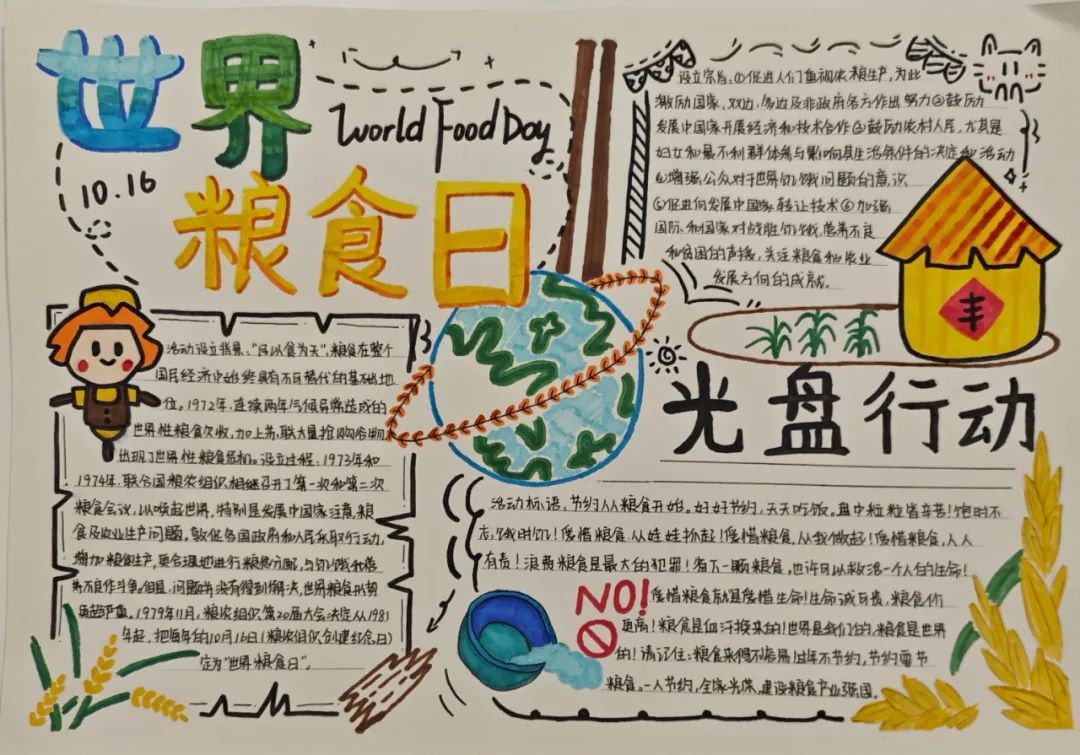 世界
World Food Day
10.16
粮食日
活动设立背景:"民以食为天",粮食在整个
国民经济中始终具有不可替代的基础地
位。1972年,连续两年气候异常造成的
世界性粮食欠收,加上苏联大量抢购谷物
出现了世界性粮食危机。设立过程:1973年和
1974年,联合国粮农组织相继召开了第一次和第二次
粮食会议,以唤起世界,特别是发展中国家注意粮
食及农业生产问题。敦促各国政府和人民采取行动,
增加粮食生产,更合理地进行粮食分配,与饥饿和营
养不良作斗争。但是,问题并没有得到解决,世界粮食形势
更趋严重。1979年11月,粮农组织第20届大会决定从1981
年起,把每年的10月16日(粮农组织创建纪念日)
定为"世界粮食日"。
设立宗旨:①促进人们重视农粮生产,为此
激励国家、双边、多边及非政府各方作出努力②鼓励
发展中国家开展经济和技术合作③鼓励农村人民,尤其是
妇女和最不利群体参与影响其生活条件的决定和活动
④增强公众对于世界饥饿问题的意识
⑤促进向发展中国家转让技术⑥加强
国际和国家对战胜饥饿、营养不良
和贫困的声援,关注粮食和农业
发展方向的成就。
丰
光盘行动
活动标语:节约从粮食开始。好好节约,天天吃饭。盘中粒粒皆辛苦!饱时不
忘饿时饥!爱惜粮食,从娃娃抓起!爱惜粮食,从我做起!爱惜粮食,人人
有责!浪费粮食是最大的犯罪!省下一颗粮食,也许可以救活一个人的生命!
NO!
爱惜粮食就是爱惜生命!生命诚可贵,粮食价
更高!粮食是血汗换来的!世界是我们的,粮食是世界
的!请记住:粮食来得不容易!过年不节约,节约要节
粮食。一人节约,全家光荣。建设粮食产业强国。